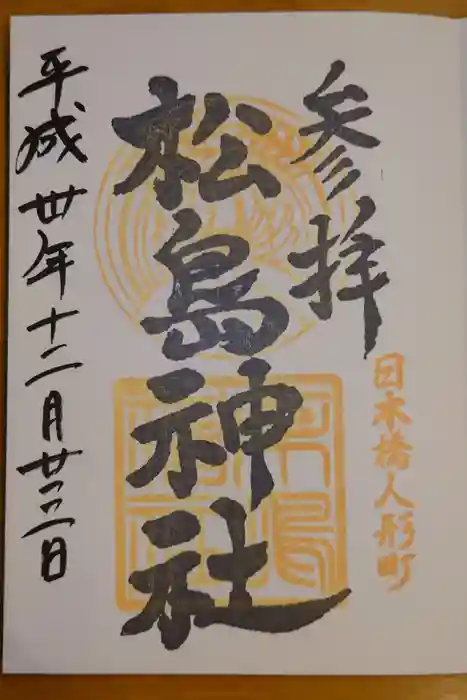 日本橋人形町
参拝
松島神社
平成丗年十二月廿三日